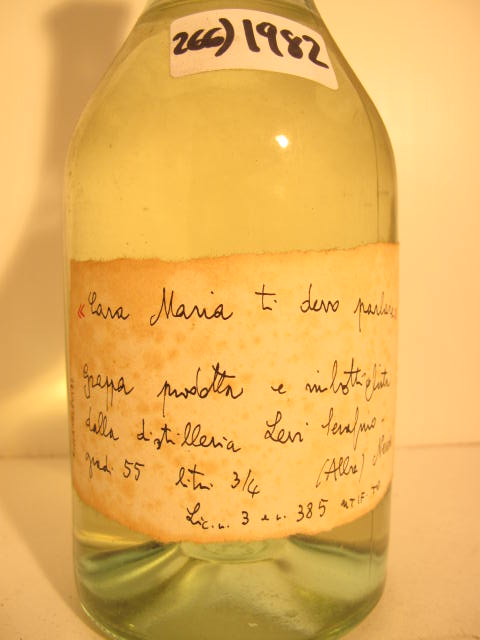 266) 1982
«Cara Maria ti devo parlare
grappa prodotta e imbottigliata
dalla distilleria Levi Serafino -
gradi 55 litri 3/4 (Alba)
Lic. n. 3 e n. 385 UTIF-TO